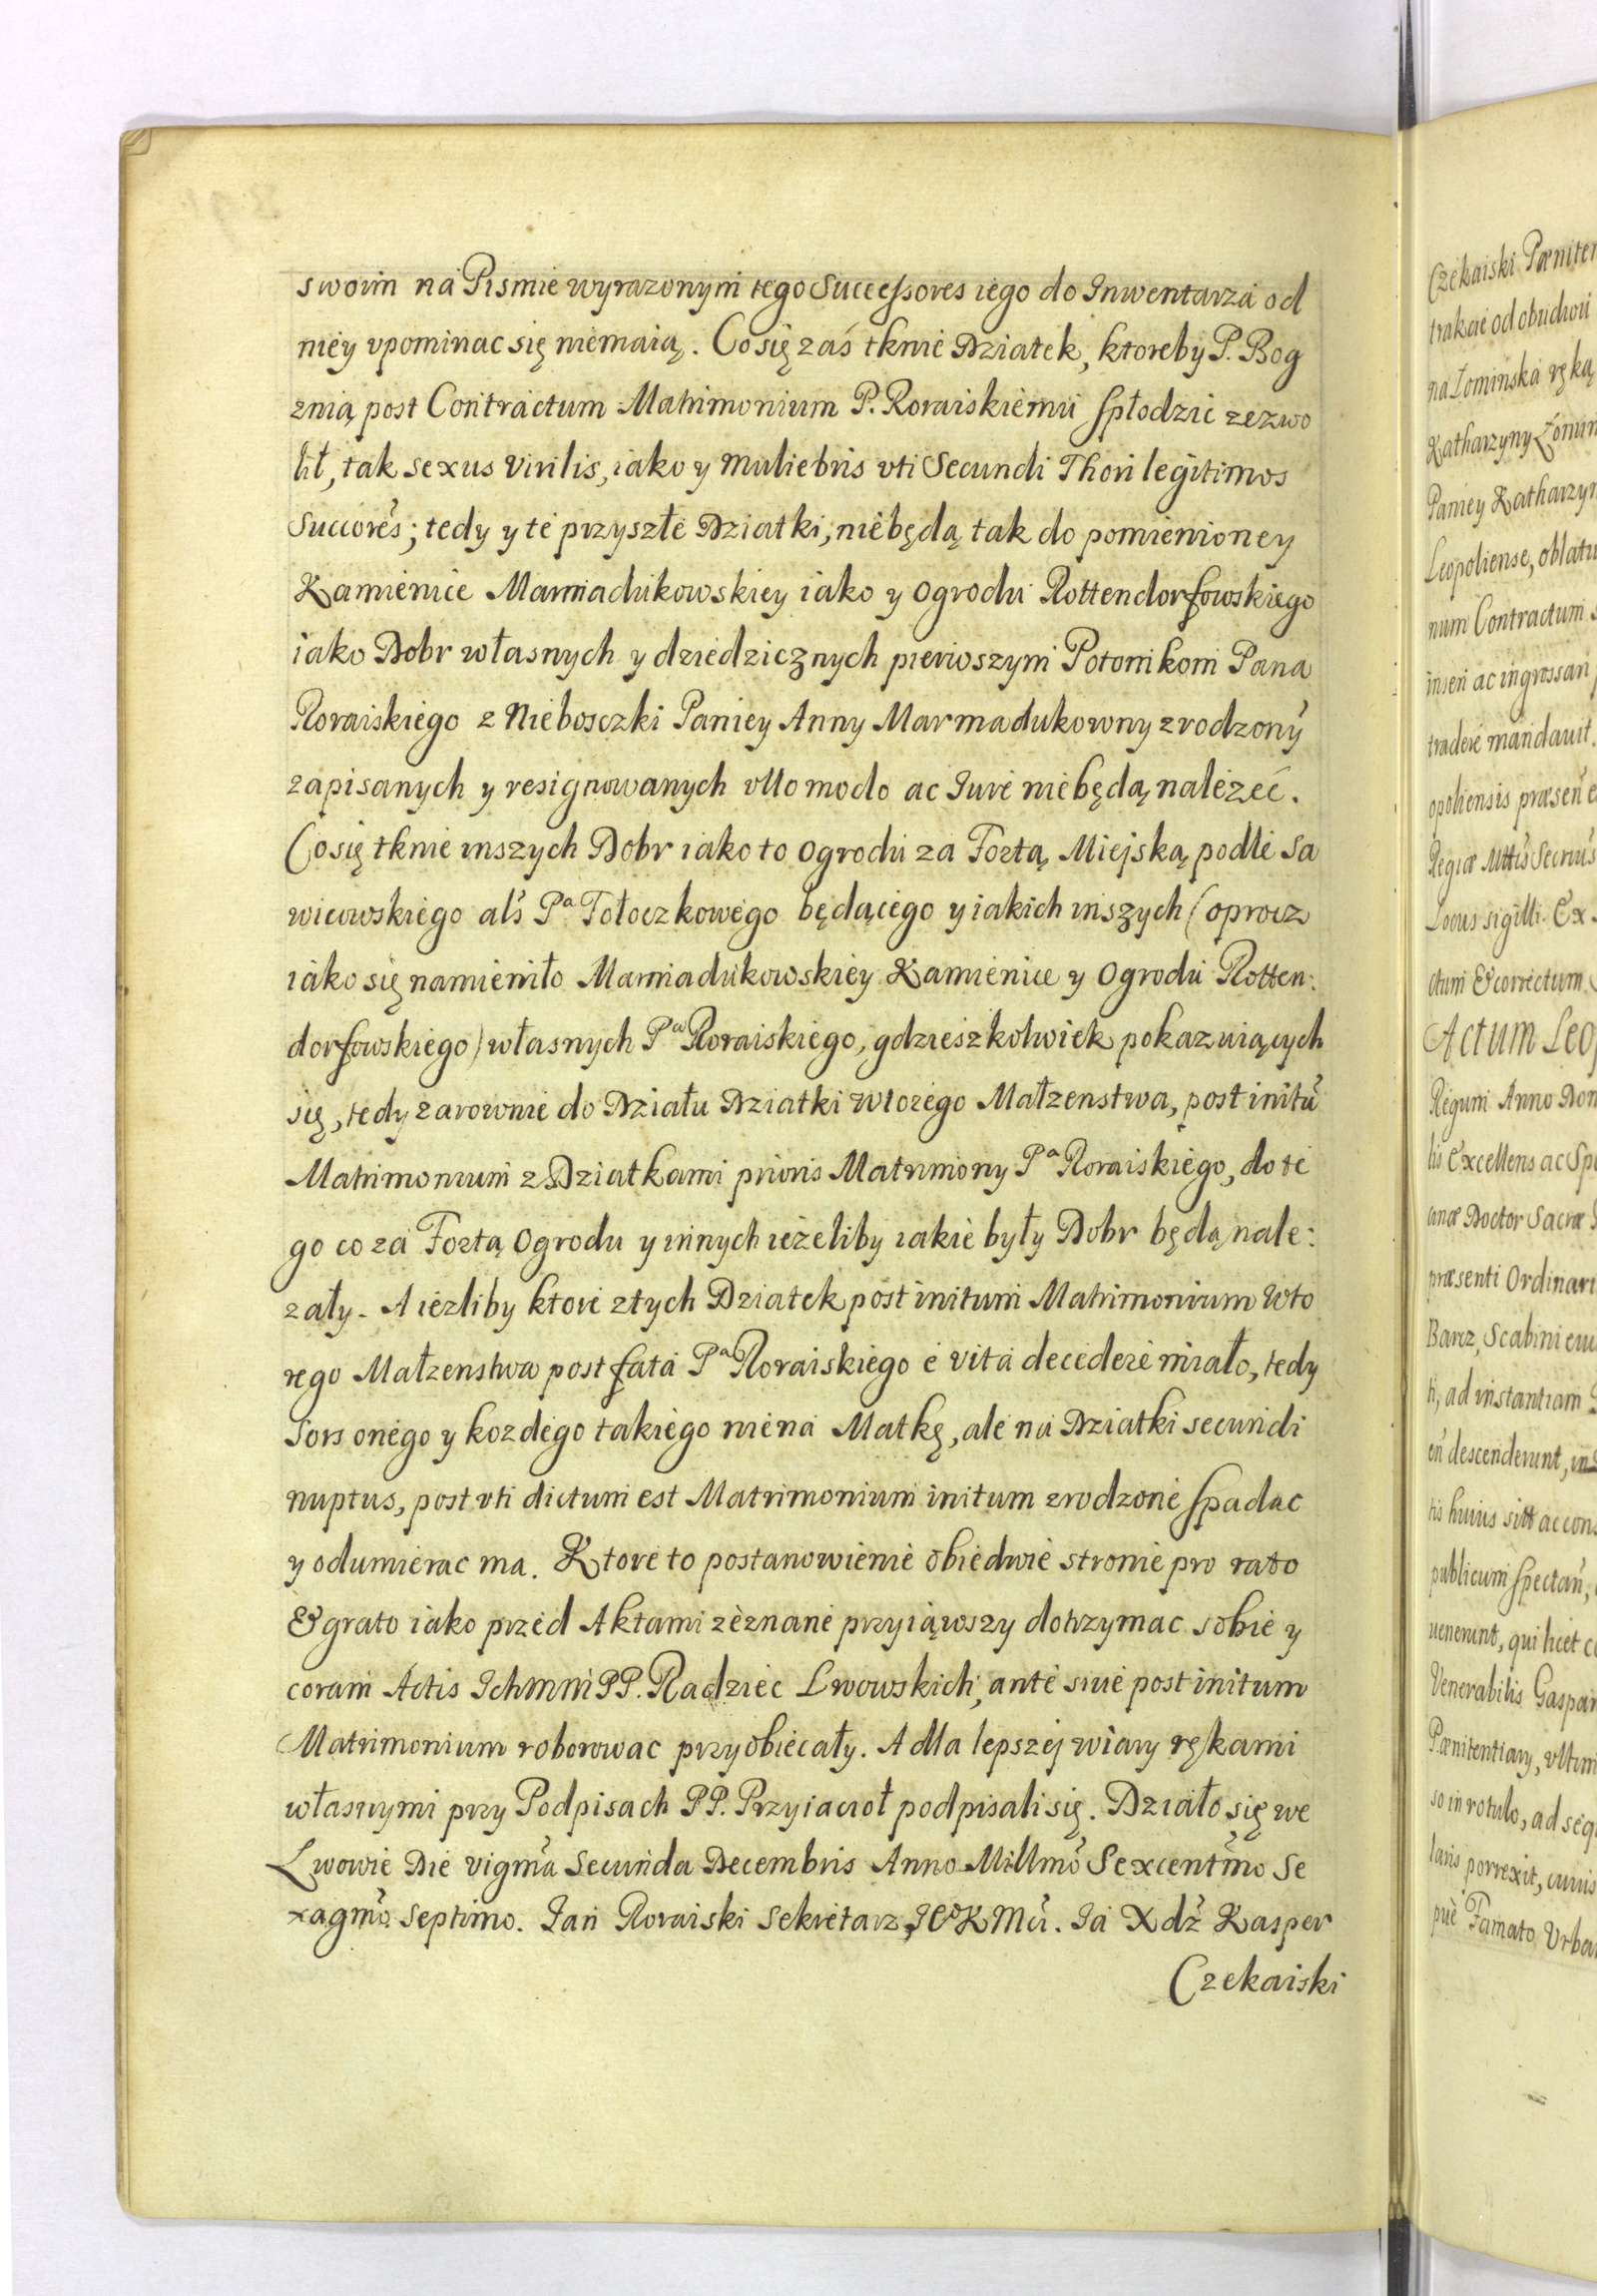 swoim na Pismie wyrazonym tego Successores iego do Inwentarza od
niey vpominac się niemaią. Co się zaś tknie Dziatek, ktoreby P. Bog
znią post Contractum Matrimonium P. Roraiskiemu spłodzic zezwo
lił, tak sexus Virilis, iako y muliebris vti Secundi Thori legitimos
Succores; tedy y te przyszłe Dziatki, niebędą tak do pomienioney
Kamienice Marmadukowskiey iako y Ogrodu Rottendorfowskiego
iako Dobr własnych y dziedzicznych pierwszym Potomkom Pana
Roraiskiego z Nieboszczki Paniey Anny Marmadukowny zrodzony
zapisanych y resignowanych vllo modo ac Iure niebędą nalezeć.
Co się tknie inszych Dobr iako to Ogrodu za Fortą Miejską podle Sa
wicowskiego als Pa Tołoczkowego będącego y iakich inszych (oprocz
iako się namieniło Marmadukowskiey Kamienice y Ogrodu Rotten:
dorfowskiego) własnych Pa Roraiskiego, gdzieszkolwiek pokazuiących
się, tedy zarownie do Działu Dziatki wtorego Małzenstwa, post initu
Matrimonium z Dziatkami prioris Matrimony Pa Roraiskiego, do te
go co za Fortą Ogrodu y innych ieżeliby iakie były Dobr będą nale:
zały. A iezliby ktore ztych Dziatek post initum Matrimonium Wto
rego Małzenstwa post fata Pa Roraiskiego e vita decedere miało, tedy
sors onego y kozdego takiego niena Matkę, ale na Dziatki secundi
nuptus, post vti dictum est Matrimonium initum zrodzone spadac
y odumierac ma. Ktore to postanowienie obiedwie stronie pro rato
& grato iako przed Aktami zeznane przyiąwszy dotrzymac sobie y
coram Actis Ichmm PP. Radziec Lwowskich, ante siue post initum
Matrimonium roborowac przyobiecały. A dla lepszej wiary rękami
własnymi przy Podpisach PP. Przyiacioł podpisali się. Działo się we
Lwowie Die vigma Secunda Decembris Anno Millmo Sexcentmo Se
xagmo Septimo. Jan Roraiski Sekretarz JeoKMci. Ja Xdz Kasper
Czekaiski
Czekaiski Pœniten
trakcie od obudwu
na Łominska ręką
Katharzyny
Paniey Katharzyn
Leopoliense, oblatu
num Contractum s
inseri ac ingrossari
tradere mandauit.
opoliensis præsen
Regiæ Mttis Secrius
Locus sigilli. Ex
ctum & correctum.
Actum Leop
Regum Anno Dom
lis Excellens ac Spe
anæ Doctor Sacræ
præsenti Ordinari
Barcz, Scabini eiu
ti, ad instantiam
en descenderunt, in
tis huius sitt ac cons
publicum spectan,
uenerunt, qui licet
Venerabilis Gaspar
Pœnitentiary, vltim
so in rotulo, ad seq
laris porrexit, cuius
pue Famato Vrba